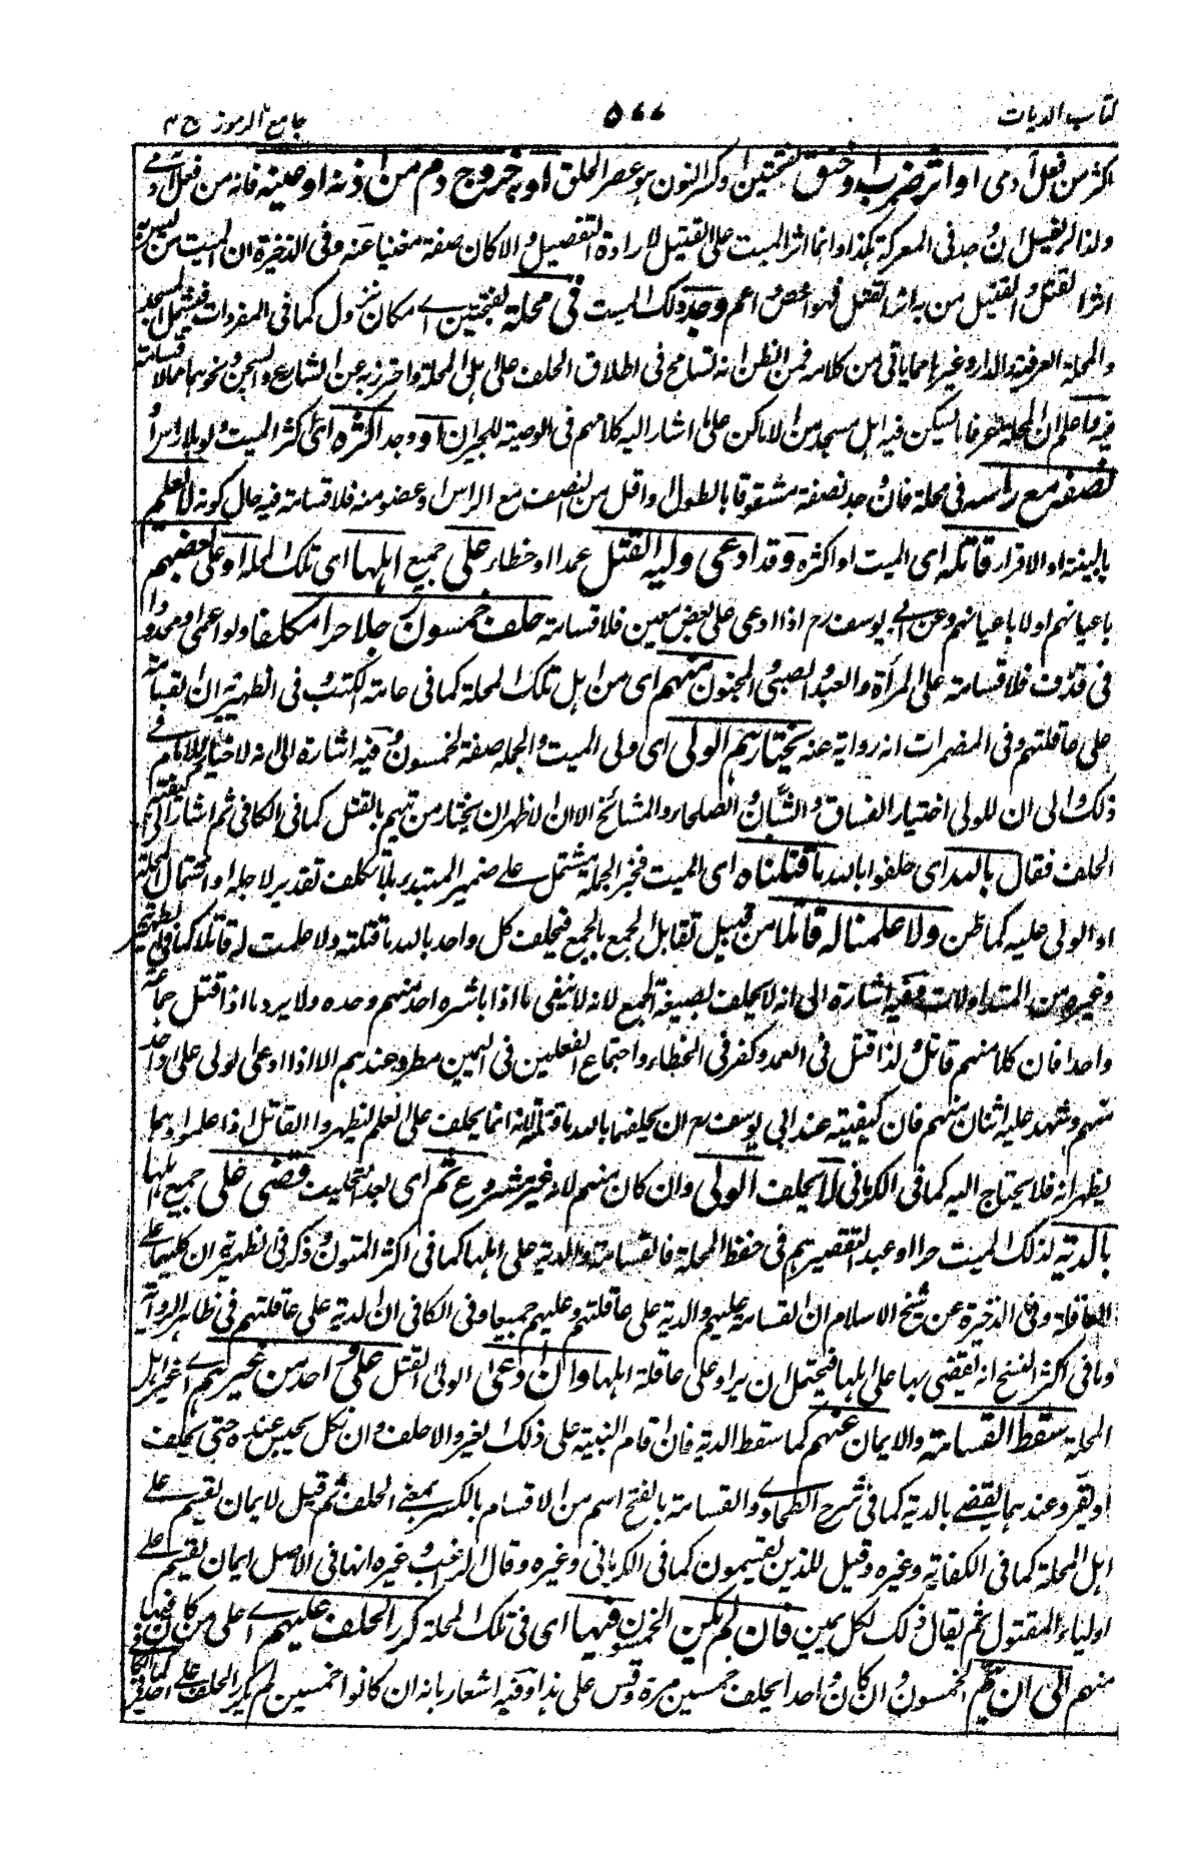 كتاب الديات ٥٦٦ جامع الرموز ج ٢
اكثر من فعل آدمي او اثر ضرب او خنق بفتحتين او كسر النون هو عصر الحلق او به خروج دم من اذنه او عينه فانه من فعل آدمي
ولذا لم يغسل ان وجد في المعركة هكذا وانما اثر الميت على القتيل لارادة التفصيل والا كان صفة مغنيا عنه وفي الذخيرة ان الميت من ليس به
اثر القتل والقتيل من به اثر القتل فهو اخص اعم وجد ذلك الميت في محلة بفتحتين اي مكان نزول كما في المفردات فيشمل المسجد
والمحلة العرفية والدار وغيرها مما ياتي من كلامه فمن الظن انه تسامح في اطلاق الحلف على اهل المحلة واحترز به عن الشارع والسجن ونحوهما مما لا قسامة
فيه فاعلم ان المحلة عرفا ما يسكن فيه اهل مسجد من الاماكن على ما اشار اليه كلامهم في الوصية للجيران او وجد اكثره اي اكثر الميت ولو بلا راس او
نصفه مع راسه في محلة فان وجد نصفه مشقوقا بالطول او اقل من النصف مع الراس او عضو منه فلا قسامة فيه حال كونه لا يعلم
بالبينة او الاقرار قاتله اي الميت او اكثره وقد ادعى وليه القتل عمدا او خطاء على جميع اهلها اي تلك المحلة او على بعضهم
باعيانهم او لا باعيانهم وعن ابي يوسف رح اذا ادعى على بعض معين فلا قسامة حلف خمسون رجلا حرا مكلفا ولو اعمى او محدودا
في قذف فلا قسامة على المرأة والعبد والصبي والمجنون منهم اي من اهل تلك المحلة كما في عامة الكتب وفي الظهيرية ان القسامة
على عاقلتهم وفي المضمرات انه رواية عنه يختارهم الولي اي ولي الميت والجملة صفة لخمسون وفيه اشارة الى انه لا خيار للامام في
ذلك والى ان للولي اختيار الفساق والشبان والصلحاء والمشائخ الا ان الاظهر ان يختار من تهم بالقتل كما في الكافي ثم اشار الى كيفية
الحلف فقال بالله اي حلفوا بالله ما قتلناه اي الميت فخبر الجملة يشتمل على ضمير المبتدء بلا تكلف تقدير لاجله او احتمال المحلة
او الولي عليه كما ظن ولا علمنا له قاتلا من قبيل تقابل الجمع بالجمع فيحلف كل واحد بالله ما قتلته ولا علمت له قاتلا كما في الظهيرية
وغيره من المتداولات ففيه اشارة الى انه لا يحلف بصيغة الجمع لانه لا ينفي ما اذا باشره احد منهم وحده ولا يرد ما اذا قتل جماعة
واحدا فان كلا منهم قاتل ولذا قتل في العمد وكفر في الخطاء واجتماع الفعلين في اليمين مطرد عندهم الا اذا ادعى الولي على واحد
منهم وشهد عليه اثنان منهم فان كيفيته عند ابي يوسف رح ان يحلفها بالله ما قتلته لانه انما يحلف على العلم ليظهروا القاتل اذا علموا وهما
يظهرانه فلا يحتاج اليه كما في الكرماني لا يحلف الولي وان كان منهم لانه غير مشروع ثم اي بعد التحليف قضى على جميع اهلها
بالدية لذلك الميت حرا او عبدا لتقصيرهم في حفظ المحلة فالقسامة والدية على اهلها كما في اكثر المتون وذكر في الظهيرية ان كليهما على
العاقلة وفي الذخيرة عن شيخ الاسلام ان القسامة عليهم والدية على عاقلتهم وعليهم جميعا وفي الكافي ان الدية على عاقلتهم في ظاهر الرواية
وما في اكثر النسخ انه يقضى بها على اهلها فيحتمل ان يراد على عاقلة اهلها وان ادعى الولي القتل على واحد من غيرهم اي غير اهل
المحلة سقط القسامة والايمان عنهم كما سقط الدية فان اقام البينة على ذلك الغير والا حلف وان نكل يحبس عنده حتى يحلف
او يقر وعندهما يقضى بالدية كما في شرح الطحاوي والقسامة بالفتح اسم من الاقسام بالكسر بمعنى الحلف ثم قيل لايمان تقسم على
اهل المحلة كما في الكفاية وغيره وقيل للذين يقسمون كما في الكرماني وغيره وقال الراغب وغيره انها في الاصل ايمان تقسم على
اولياء المقتول ثم يقال ذلك لكل يمين فان لم يكن الخمسون فيها اي في تلك المحلة كرر الحلف عليهم اي على من كان فيها
منهم الى ان يتم الخمسون ان كان واحدا يحلف خمسين مرة وقس على هذا وفيه اشعار بانه ان كانوا خمسين لم يكرر الحلف على احد كما في الكافي